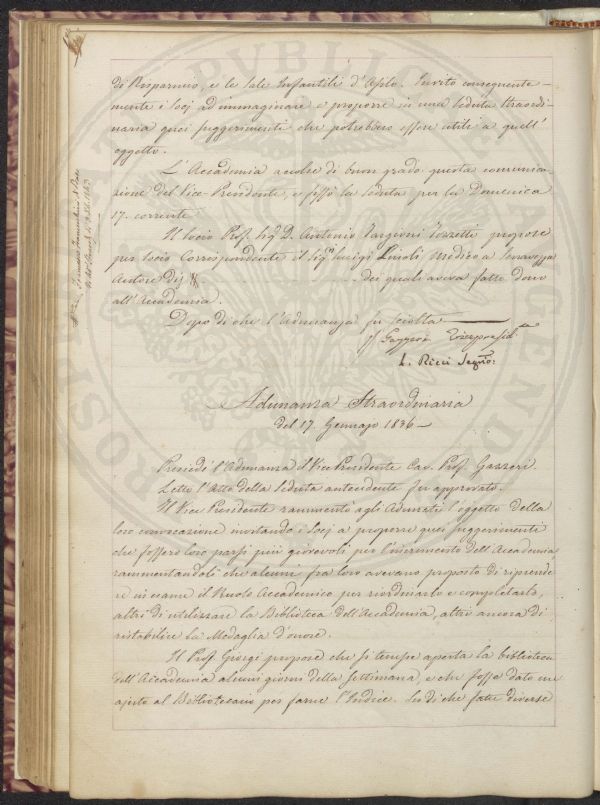 di Risparmio, e le Sale Infantili d'Asilo. Invitò conseguente
mente i Socj ad immaginare e proporre in una Seduta straordi-
naria quei suggerimenti che potrebbero essere utili a quell'
oggetto.
L'Accademia accolse di buon grado questa comunica-
zione del Vice-Presidente, e fissò la seduta per la Domenica
17. corrente
Il Socio Prof. Sig. D. Antonio Targioni Tozzetti propose
per Socio Corrispondente il Sig. Luigi Linoli Medico a Seravezza
Autore di dei quali aveva fatto dono
all'Accademia.
Dopo di che l'Adunanza fu sciolta
Gazzeri Vicepresid
L. Ricci Segrio:
Adunanza Straordinaria
del 17. Gennajo 1836
Presiedè l'Adunanza il Vice Presidente Cav. Prof. Gazzeri.
Letto l'Atto della Seduta antecedente fu approvato.
Il Vice Presidente rammentò agli Adunati l'oggetto della
loro convocazione invitando i Socj a proporre quei suggerimenti
che fossero loro parsi più giovevoli per l'incremento dell'Accademia
rammentandoli che alcuni fra loro avevano proposto di riprende
re in esame il Ruolo Accademico per riordinarlo e completarlo,
altri di utilizzare la Biblioteca dell'Accademia, altri ancora di
ristabilire la Medaglia d'onore.
Il Prof. Giorgi propose che si tenesse aperta la biblioteca
dell'Accademia alcuni giorni della Settimana, e che fosse dato un
ajuto al Bibliotecario per farne l'Indice. Su di che fatte diverse